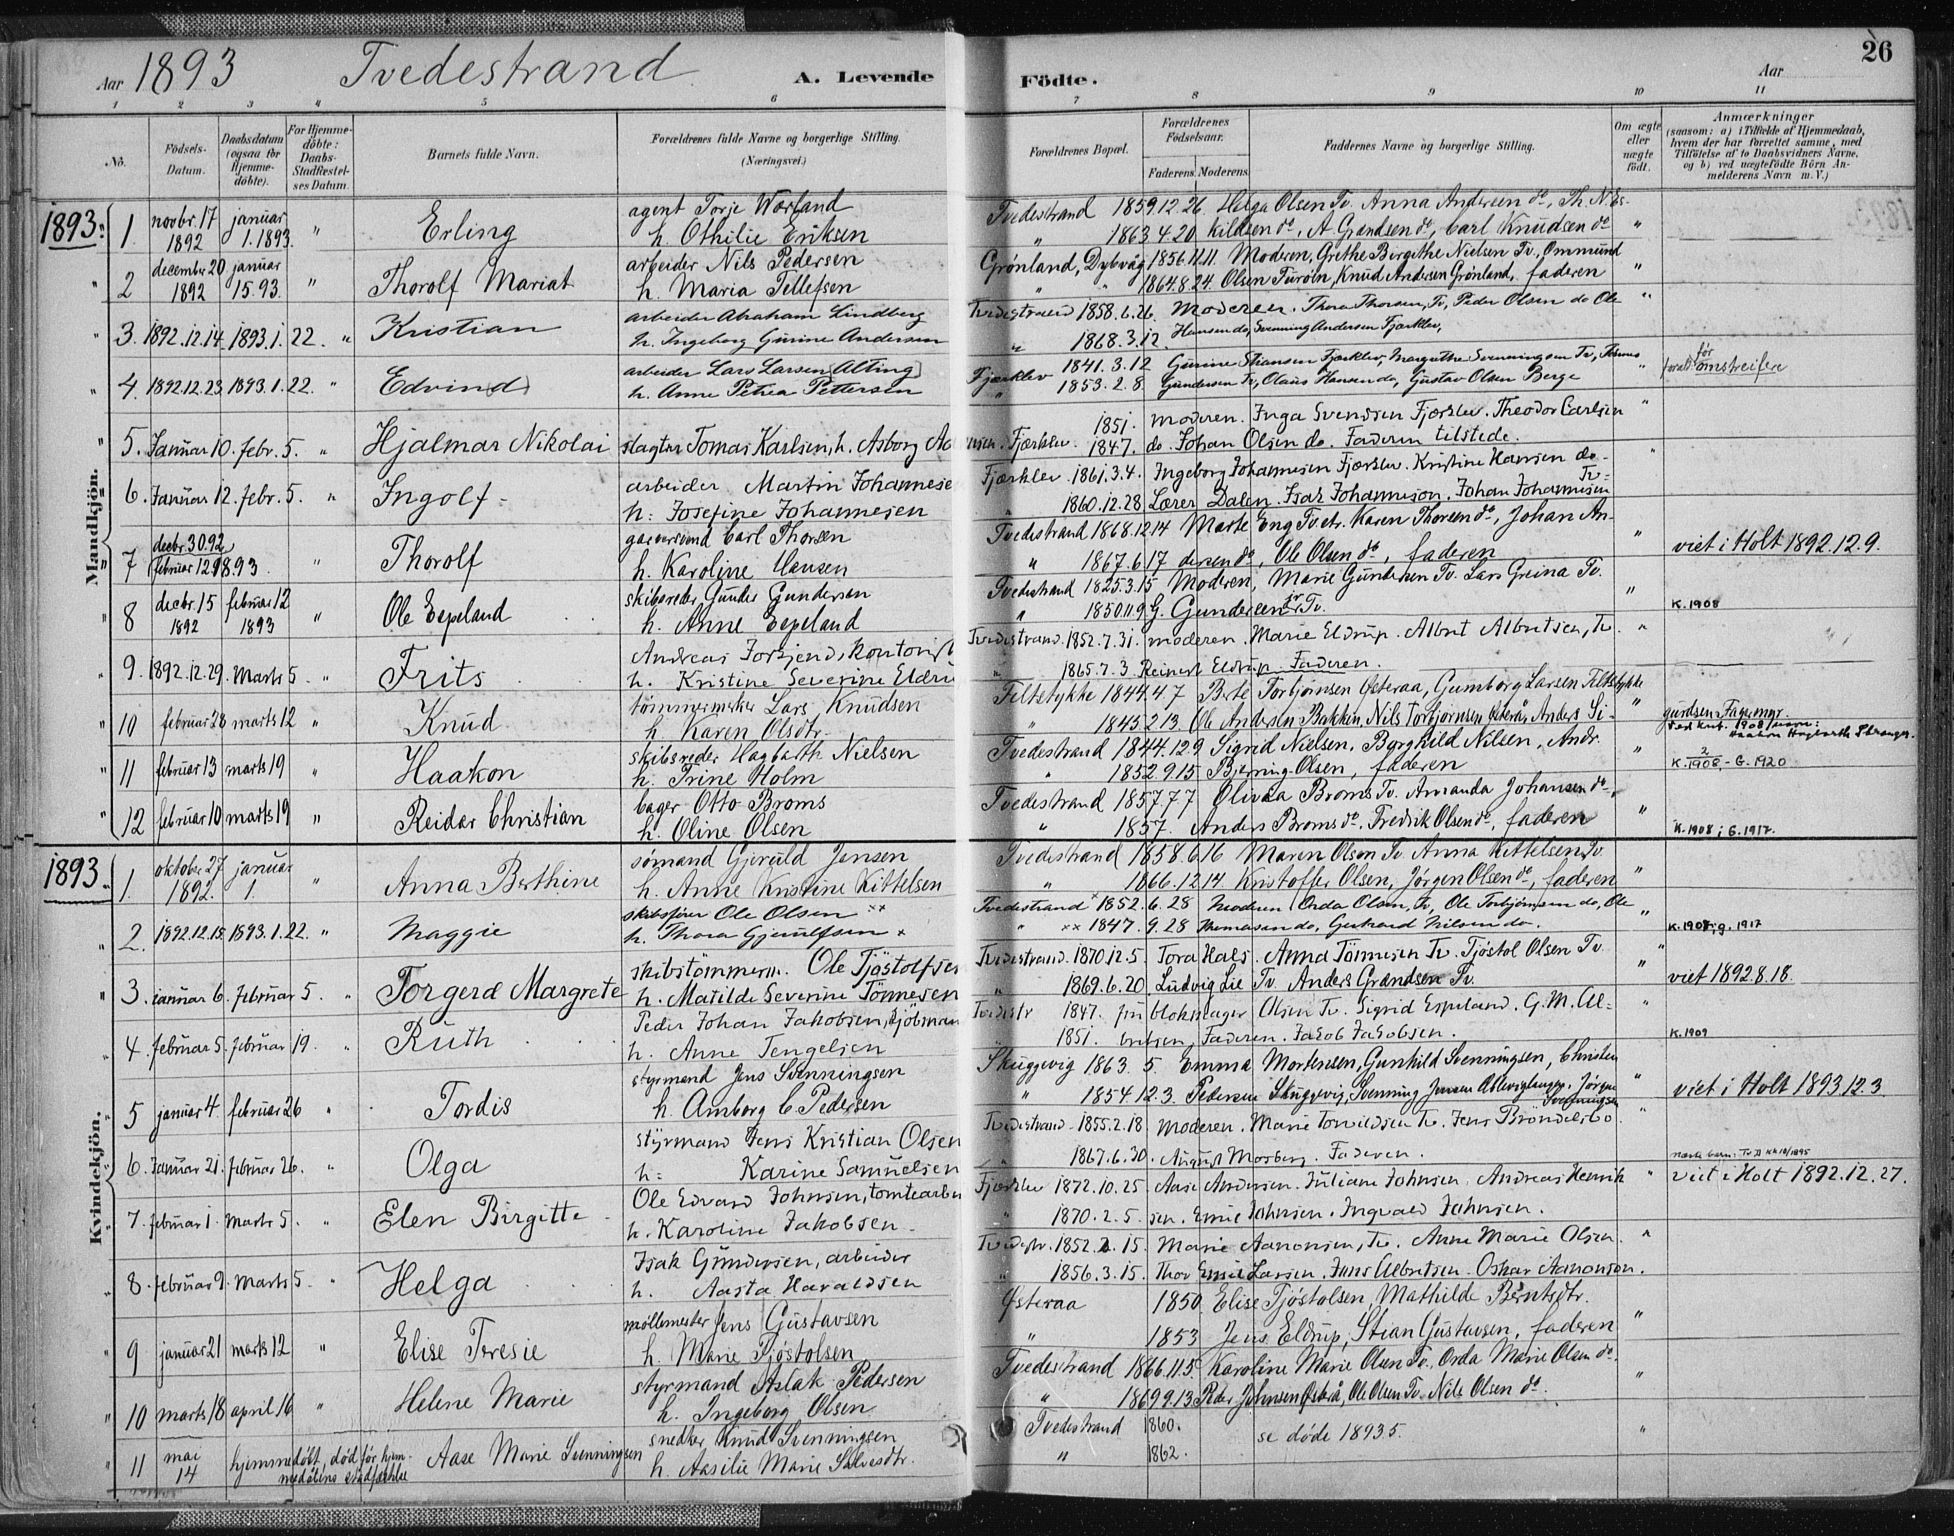 Aar 1893 Tvedestrand A. Levende Födte. Aar 26
1 2 3 4 5 6 7 8 9 10 11
No. Födsels-Datum. Daabsdatum (ogsaa for Hjemme-döbte). For Hjemme-döbte: Daabs-Stadfæstel-ses Datum. Barnets fulde Navn. Forældrenes fulde Navne og borgerlige Stilling. (Næringsvei.) Forældrenes Bopæl. Forældrenes Födselsaar. Faderens. Moderens. Faddernes Navne og borgerlige Stilling. Om ægte eller uægte födt. Anmærkninger (saasom: a) i Tilfælde af Hjemmedaab, hvem der har forrettet samme, med Tilföielse af to Daabsvidners Navne, og b) ved uægtefödte Börn An-melderens Navn m. V.)
Mandkjön.
1893. 1 novbr. 17 januar " Erling agent Torje Worland Tvedestrand 1859.12.26 Helga Olsen Tv. Anna Andersen do, Th. N. Es-
1892 1. 1893. h. Othilie Eriksen " 1863 4 20 kildsen do, A. Grandsen do, Carl Knudsen do "
" 2 december 20 januar " Thorolf Mariat arbeider Nils Pedersen Grönland, Dybvåg 1856.12.11. Moderen, Grethe Birgethe Nielsen Tv., Ommund
1892 15.93. h. Maria Tellefsen " " 1864.8.24. Olsen Furöen, Knud Andersen Grönland, faderen "
" 3. 1892.12.14. 1893.1.22. " Kristian arbeider Abraham Lindberg Tvedestrand 1858.6.26. Moderen. Thora Thorsen, Tv, Peder Olsen do Ole "
h. Ingeborg Gurine Andersen " 1868.3.12. Hansen do, Svenning Andersen Fjærklev,
" 4. 1892.12.23. 1893.1.22. " Edvind arbeider Lars Larsen (Alting) Fjærklev 1841.3.12 Gurine Stiansen Fjærklev, Margrethe Svenningsen Tv, Thomas
h. Anne Petrea Pettersen " 1853.2.8. Gundersen Tv, Olaus Hansen do, Gustav Olsen Berge " foræld. för omstreifere
" 5. Januar 10. febr. 5. " Hjalmar Nikolai slagter Tomas Karlsen, h. Asborg Aa nsen. Fjærklev. 1851. moderen. Inga Svendsen Fjærklev. Theodor Carlsen "
1847. do. Johan Olsen do. Faderen tilstede.
" 6. Januar 12. febr. 5. " Ingolf arbeider Martin Johannese Fjærklev 1861.3.4. Ingeborg Johannesen Fjærklev. Kristine Hansen do. "
h. Josefine Johannesen " 1860.12.28 Lærer Dalen. Isak Johannesen. Johan Johannesen Tv.
" 7 decbr. 30.92 Februar 12 1893. " Thorolf garversvend Carl Thorsen Tvedestrand 1868.12.14 Marte Eng Tvestr. Karen Thorsen do, Johan An-
h. Karoline Hansen " 1867.6.17 dersen do, Ole Olsen do, faderen viet i Holt 1892.12.9.
" 8 decbr. 15 februar 12 " Ole Espeland skibsreder Gunder Gundersen Tvedestrand 1825.3.15 Moderen, Marie Gundersen Tv. Lars Greina Tv.
1892 1893 h. Anne Espeland " 1850.11.9 G. Gundersen jr Tv. " K. 1908
9. 1892.12.29. Marts 5. " Frits Andreas Torkjend, kontorist Tvedestrand. 1852.7.31. moderen. Marie Eldrup. Albert Albertsen, Tv. "
h. Kristine Severine Eldru " 1865.7.3. Reinert Eldrup. Faderen.
" 10 februar 28 marts 12 " Knud tömmermester Lars Knudsen Tiltstykke 1844.4.7 Berte Torbjörnsen Østeraa, Gumborg Larsen Tiltstykke
h. Karen Olsdtr. " 1845 2 13. Ole Andersen Bakken, Nils Torbjornsen Østerå, Anders Si- " gurdsen Fagermyr.
" 11 februar 13 marts 19 " Haakon skibsreder Hagbarth Nielsen Tvedestrand 1844.12.9 Sigrid Nielsen, Borghild Nilsen, Andr. Ved konf. 1908 navn: Haakon Hagbarth
h. Trine Holm " 1852 9 15 Bjerning Olsen, faderen " K. 2/1908. - G. 1920
" 12 februar 10 marts 19 " Reidar Christian bager Otto Broms Tvedestrand 1857.7.7 Olivia Broms Tv. Amanda Johansen do.
h. Oline Olsen " 1857. Anders Broms do. Fredrik Olsen do, faderen " K. 1908; G. 1917.
Kvindekjön.
1893. 1. oktober 27 januar " Anna Berthine sömand Gjeruld Jensen Tvedestrand 1858.6.16 Maren Olsen Tv. Anna Kittelsen Tv
1892. 1. h. Anne Kristine Kittelsen " 1866.12 14 Kristoffer Olsen, Jörgen Olsen do, faderen "
" 2. 1892.12.15. 1893.1.22. " Maggie skibsförer Ole Olsen xx Tvedestrand x 1852.6.28 Moderen Orda Olsen, Tv, Ole Torbjörnsen do, Ole
h. Thora Gjerulfsen x " xx 1847.9.28 Thomasen do, Gerhard Nilsen do. " K. 1908; g. 1917
" 3. januar 6. Februar 5. " Torgerd Margrete skibstömmerm. Ole Tjöstolfsen Tvedestrand. 1870.12.5. Tora Hals. Anna Tönnesen Tv. Tjöstol Olsen Tv "
h. Matilde Severine Tönnesen " 1869.6.20 Ludvig Lie Tv. Anders Grændsen Tv. " viet 1892.8.18.
4. februar 5. Februar 19. " Ruth Peder Johan Jakobsen, kjöbman Tvedestr 1847. fru blokmager Olsen Tv. Sigrid Espeland. G. M. Al- "
h. Anne Tengelsen " 1851. bretsen, Faderen. Jakob Jakobsen. K. 1909
5 januar 4. februar 26 " Tordis styrmand Jens Svenningsen Skuggevig 1863. 5. Emma Mortensen, Gunhild Svenningsen, Christen
h. Amborg C Pedersen " 1854 12.3. Pedersen Skuggevig, Svenning Jensen, Jörgen Svenningsen " viet i Holt 1893.12.3.
6. Januar 21. februar 26. " Olga styrmand Jens Kristian Olsen Tvedestrand. 1855.2.18. moderen. Marie Tonildsen Tv. Jens Bröndelsbo. "
h. Karine Samuelsen " 1867.6.30. August Morberg. Faderen.
7. februar 1. Marts 5. " Elen Birgitte Ole Edvard Johnsen, tomtearbe Fjærklev 1872.10.25. Aase Andersen. Juliane Johnsen. Andreas Henrik " viet i Holt 1892.12.27.
h. Karoline Jakobsen. " 1870.2.5. sen. Emil Johnsen. Ingvald Johnsen.
8. februar 9. Marts 5. " Helga Isak Gundersen, arbeider Tvedestr. 1852.2.15. Marie Aanonsen, Tv. Anne Marie Olsen. "
h. Aasta Haraldsen " 1856.3.15. Thor Emil Larsen. Jens Albretsen. Oskar Aanonsen.
" 9 januar 21 marts 12 " Elise Teresie möllemester Jens Gustavsen Østeraa 1850 Elise Tjöstolsen, Mathilde Berntsdtr.
h. Marie Tjöstolsen " 1853 Jens Eldrup, Stian Gustavsen, faderen "
" 10 marts 18 april 16 " Helene Marie styrmand Aslak Pedersen Tvedestrand 1866.11.5 Karoline Marie Olsen Tv, Orda Marie Olsen do.
h. Ingeborg Olsen. " 1869 9.13. Peder Johnsen Østerå, Ole Olsen Tv. Nils Olsen do. "
" 11 mai 14 hjemmedöbt, död för hjem-medåbens stadfæstelse Aase Marie Svenningsen snedker Knud Svenningsen Tvedestrand 1860. se döde 1893 5. "
h. Aasilie Marie Salvesdtr. " 1862.